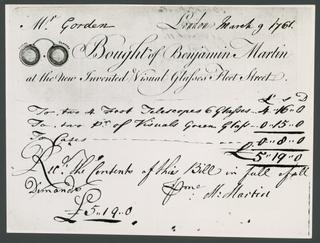 Mr Gorden London March 9 1761
Bought of Benjamin Martin
at the new Invented Visual Glasses Fleet Street.
L S D
To two 4 Foot Telescopes 6 Glasses 4..16..0
To two pr of Visuals Green Glass 0..15..0
To Cases 0..8..0
5..19..0
Recd the Contents of this Bill in full of all
Demands pme
£5..19..0 Martin